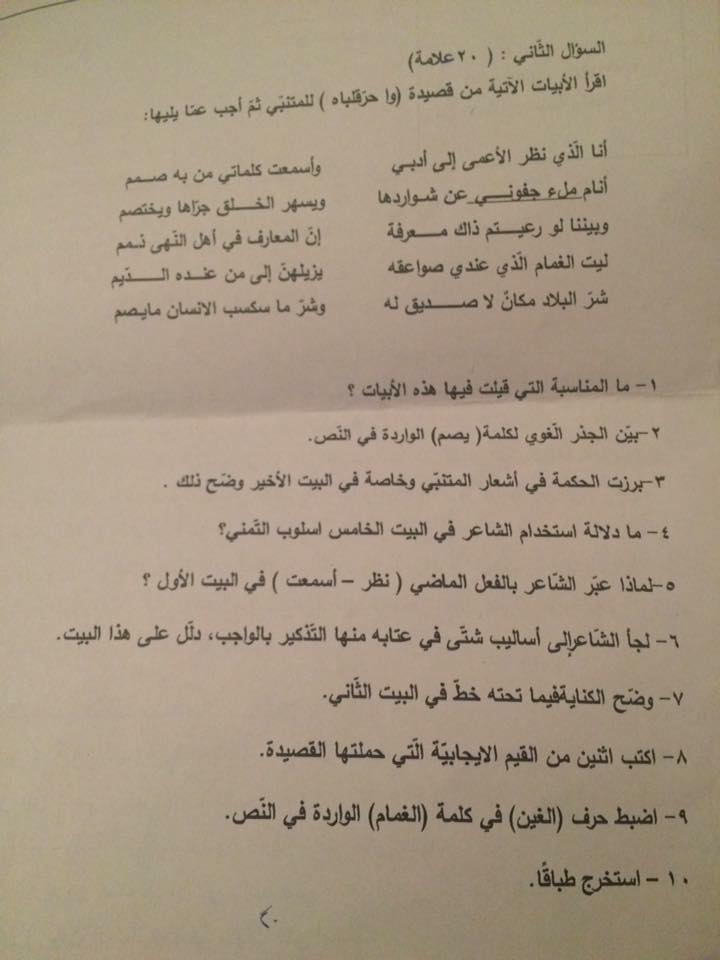 السؤال الثّاني : ( ٢٠ علامة)
اقرأ الأبيات الآتية من قصيدة (وا حرّقلباه ) للمتنبّي ثمّ أجب عمّا يليها:
أنا الّذي نظر الأعمى إلى أدبي وأسمعت كلماتي من به صمم
أنام ملء جفوني عن شواردها ويسهر الخلق جرّاها ويختصم
وبيننا لو رعيتم ذاك معرفة إنّ المعارف في أهل النّهى ذمم
ليت الغمام الّذي عندي صواعقه يزيلهنّ إلى من عنده الدّيم
شرّ البلاد مكانٌ لا صديق له وشرّ ما سكسب الانسان مايصم
١- ما المناسبة التي قيلت فيها هذه الأبيات ؟
٢-بيّن الجذر الّغوي لكلمة( يصم) الواردة في النّص.
٣-برزت الحكمة في أشعار المتنبّي وخاصة في البيت الأخير وضّح ذلك .
٤- ما دلالة استخدام الشاعر في البيت الخامس اسلوب التّمني؟
٥-لماذا عبّر الشّاعر بالفعل الماضي ( نظر – أسمعت ) في البيت الأول ؟
٦- لجأ الشّاعرإلى أساليب شتّى في عتابه منها التّذكير بالواجب، دلّل على هذا البيت.
٧- وضّح الكنايةفيما تحته خطّ في البيت الثّاني.
٨- اكتب اثنين من القيم الايجابيّة الّتي حملتها القصيدة.
٩- اضبط حرف (الغين) في كلمة (الغمام) الواردة في النّص.
١٠ – استخرج طباقًا.
٢٠